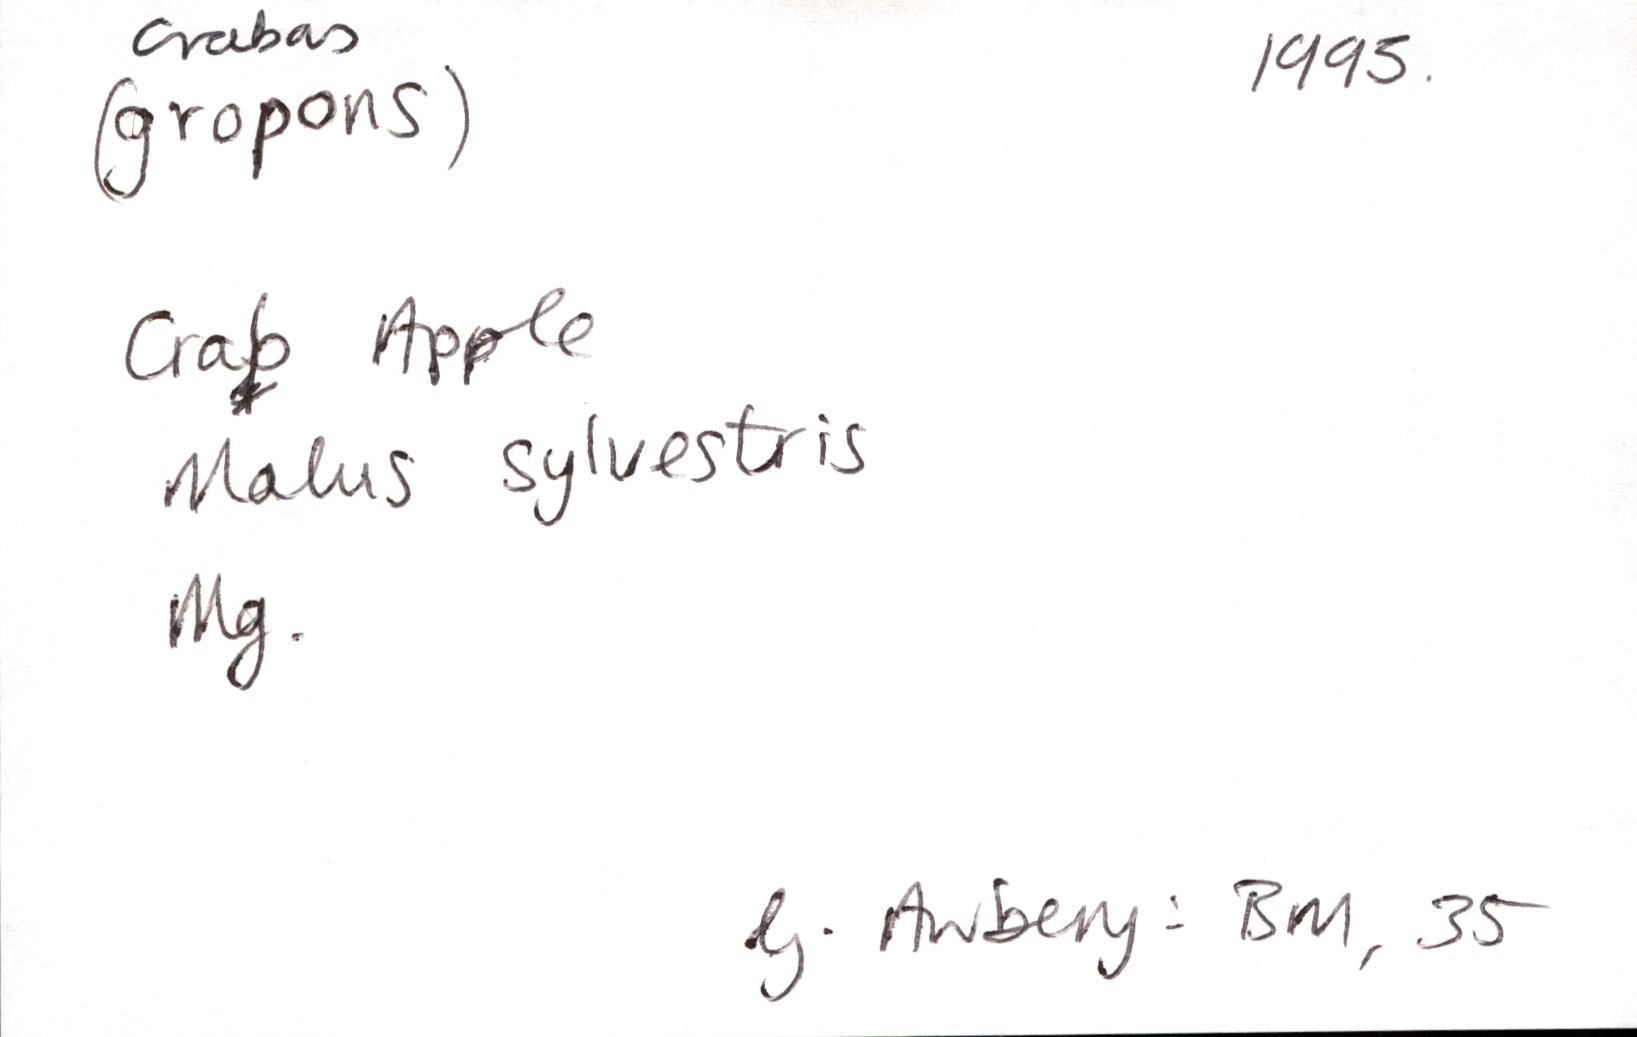 crabas 1995.
(gropons)
Crab Apple
Malus sylvestris
Mg.
G. Awbery: BM, 35